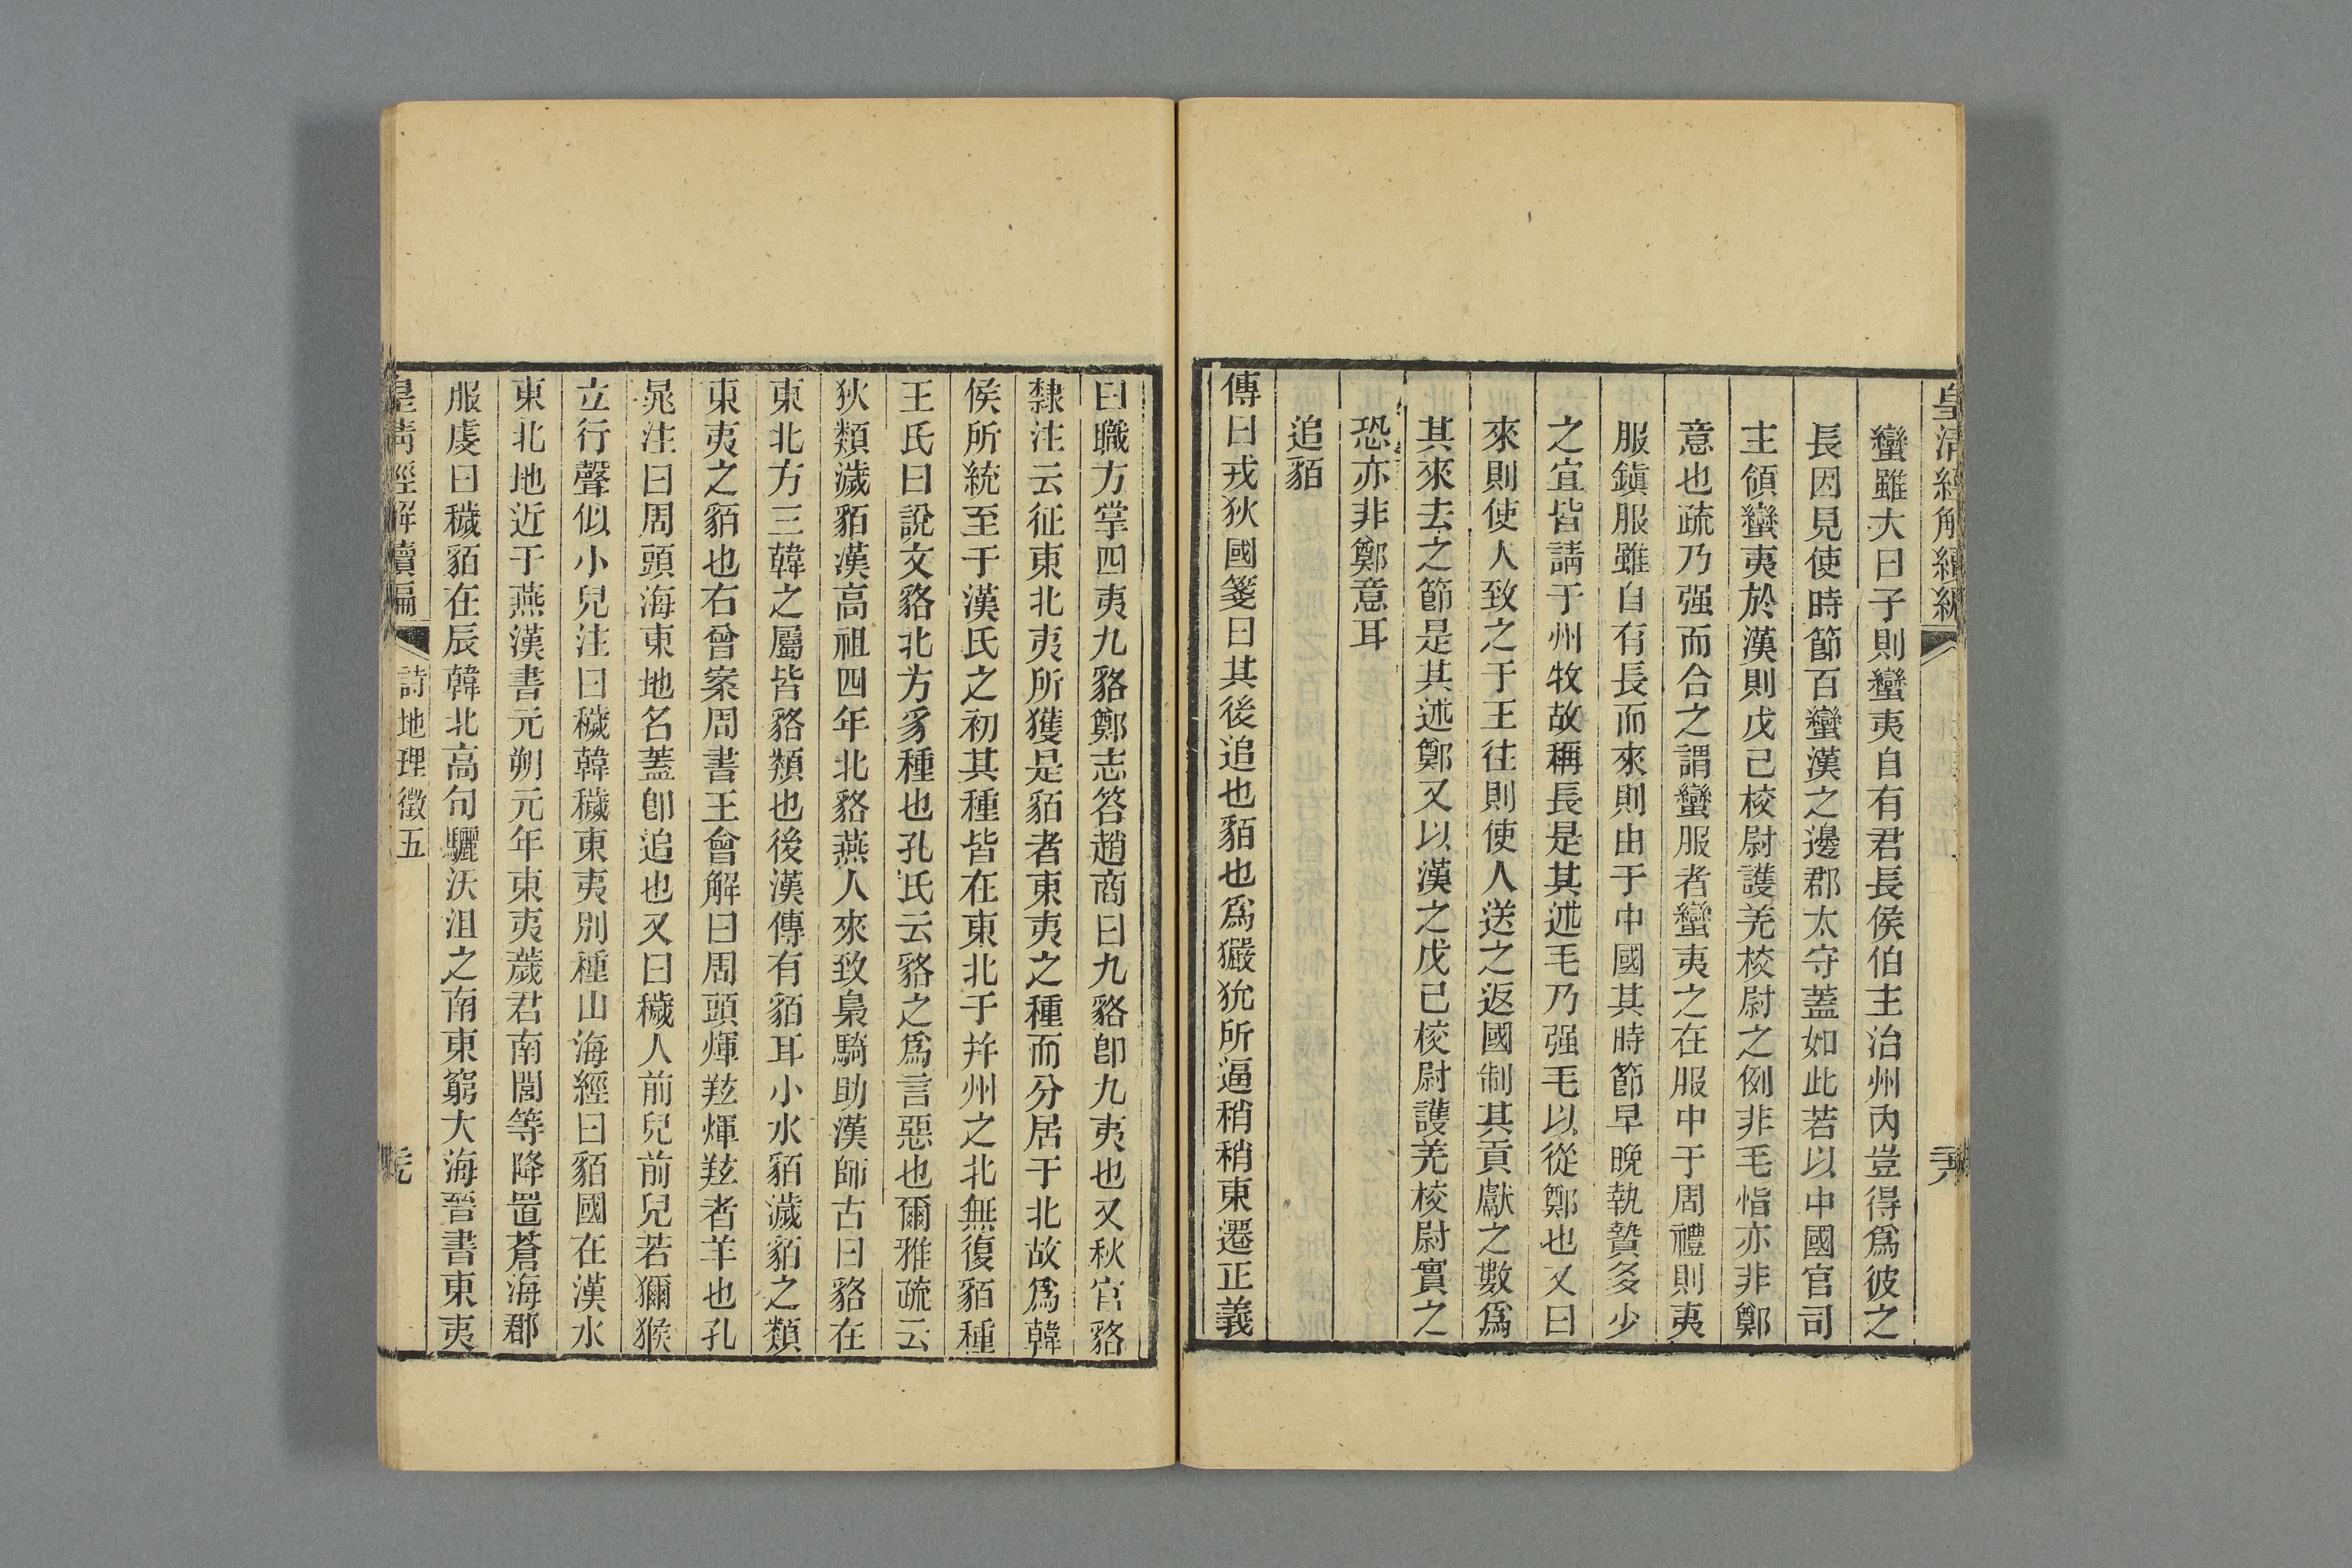 皇清經解續編
蠻雖大曰子則蠻夷自有君長侯伯主治州內豈得爲彼之
長因見使時節百蠻漢之邊郡太守蓋如此若以中國官司
主領蠻夷於漢則戊己校尉護羌校尉之例非毛恉亦非鄭
意也疏乃强而合之謂蠻服者蠻夷之在服中于周禮則夷
服鎭服雖自有長而來則由于中國其時節早晚執贄多少
之宜皆請于州牧故稱長是其述毛乃强毛以從鄭也又曰
來則使人致之于王往則使人送之返國制其貢獻之數爲
其來去之節是其述鄭又以漢之戊己校尉護羌校尉實之
恐亦非鄭意耳
追貊
傳曰戎狄國箋曰其後追也貊也爲玁狁所逼稍稍東遷正義
曰職方掌四夷九貉鄭志答趙商曰九貉卽九夷也又秋官貉
隸注云征東北夷所獲是貊者東夷之種而分居于北故爲韓
侯所統至于漢氏之初其種皆在東北于幷州之北無復貊種
王氏曰說文貉北方豸種也孔氏云貉之爲言惡也爾雅疏云
狄類濊貊漢高祖四年北貉燕人來致梟騎助漢師古曰貉在
東北方三韓之屬皆貉類也後漢傳有貊耳小水貊濊貊之類
東夷之貊也右曾案周書王會解曰周頭煇羝煇羝者羊也孔
晁注曰周頭海東地名蓋卽追也又曰穢人前兒前兒若獼猴
立行聲似小兒注曰穢韓穢東夷別種山海經曰貊國在漢水
東北地近于燕漢書元朔元年東夷薉君南閭等降置蒼海郡
服虔曰穢貊在辰韓北高句驪沃沮之南東窮大海晉書東夷
皇清經解續編
詩地理徵五